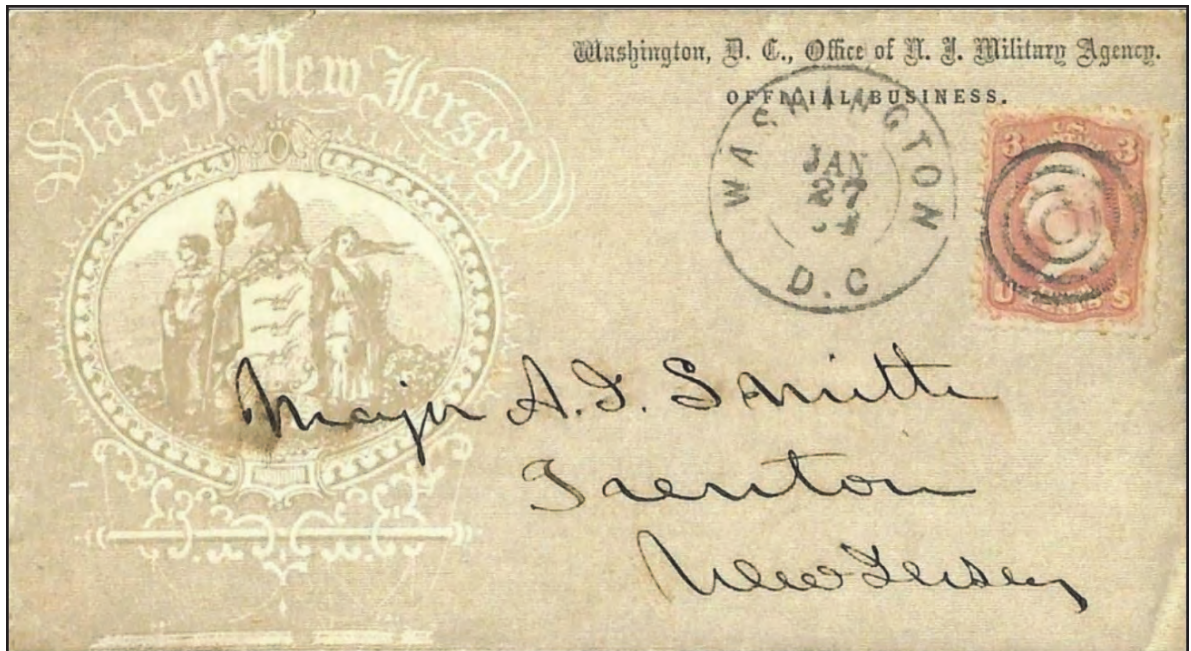 State of New Jersey
Washington, D. C., Office of N. J. Military Agency.
OFFICIAL BUSINESS.
WASHINGTON
JAN
27
D.C
3 US 3
U CENTS S
Major A. J. Smith
Trenton
New Jersey